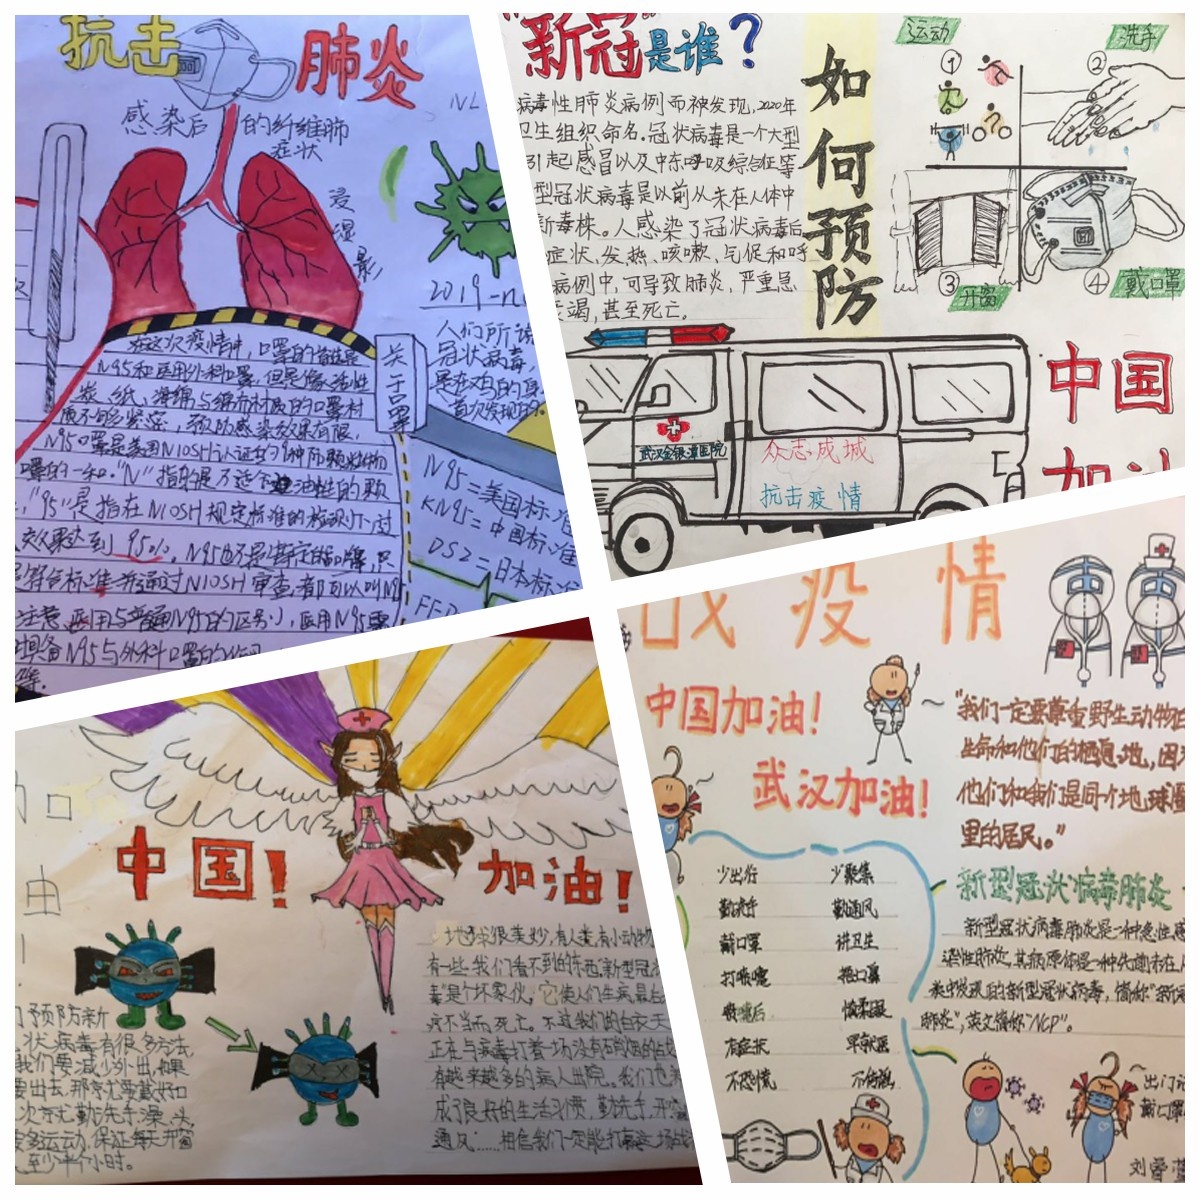 抗击
肺炎
感染后 的纤维肺
症状
浸
湿
影
2019-n
人们所说
冠状病毒,
关于口罩
在这次疫情中,口罩的首选是
N95和医用外科口罩,但是像活性
炭、纸、海绵与绵布材质的口罩材
质不够紧密,预防感染效果有限,
N95口罩是美国NIOSH认证的9种防颗粒物
口罩的一种。"N"指的是不适合油性的颗
"95"是指在NIOSH规定标准的检测下过
效果达到95%。N95也不是特定的品牌,只
要符合标准并通过NIOSH审查都可以叫N95
N95=美国标准
KN95=中国标准
DS2=日本标准
"新冠"是谁?
病毒性肺炎病例而被发现,2020年
卫生组织命名。冠状病毒是一个大型
引起感冒以及中东呼吸综合征等
型冠状病毒是以前从未在人体中
新毒株。人感染了冠状病毒后
症状、发热、咳嗽、气促和呼
病例中,可导致肺炎,严重急
竭,甚至死亡。
如何预防
运动
洗手
①
②
③开窗
④戴口罩
武汉金银潭医院
众志成城
抗击疫情
中国
加油
中国!
加油!
预防新
状病毒有很多方法
我们要减少外出,如果
要出去,那就要戴好口
多运动,保证每天开窗
至少半个小时。
地球很美妙,有人类,有小动物
有一些我们看不到的东西,新型冠
毒"是个坏家伙。它使人们生病最后
疗不当而死亡。不过我们的白衣天
正在与病毒打着一场没有硝烟的战
有越来越多的病人出院。我们也
成了良好的生活习惯,勤洗手,开窗
通风……相信我们一定能打赢这场战
战疫情
中国加油!
武汉加油!
"我们一定要尊重野生动物
生命和他们的栖息地,因
他们和我们是同一个地球
里的居民。"
少出行 少聚集
勤洗手 勤通风
戴口罩 讲卫生
打喷嚏 捂口鼻
有症状 早就医
不恐慌 不传谣
新型冠状病毒肺炎
新型冠状病毒肺炎是一种急性感
染性肺炎,其病原体是一种先前未在人
类中发现的新型冠状病毒,简称"新冠
肺炎",英文简称"NCP"。
出门
戴口罩